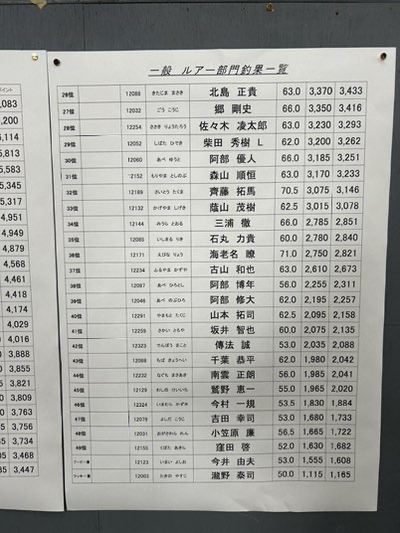 ポイント
,083
,200
5,114
5,813
5,583
5,345
5,317
4,951
4,949
4,879
4,568
4,461
4,418
4,174
4,029
4,016
3,888
3,855
3,821
3,809
3,763
3,756
3,734
3,468
3,447
一般 ルアー部門釣果一覧
26位 12088 きたじま まさき 北島 正貴 63.0 3,370 3,433
27位 12032 ごう こうじ 郷 剛史 66.0 3,350 3,416
28位 12254 ささき りょうたろう 佐々木 凌太郎 63.0 3,230 3,293
29位 12052 しばた ひでき 柴田 秀樹 L 62.0 3,200 3,262
30位 12060 あべ ゆうと 阿部 優人 66.0 3,185 3,251
31位 12152 もりやま としのぶ 森山 順恒 63.0 3,170 3,233
32位 12189 さいとう たくま 齊藤 拓馬 70.5 3,075 3,146
33位 12132 かげやま しげき 蔭山 茂樹 62.5 3,015 3,078
34位 12144 みうら とおる 三浦 徹 66.0 2,785 2,851
35位 12085 いしまる りき 石丸 力貴 60.0 2,780 2,840
36位 12171 えびな りょう 海老名 瞭 71.0 2,750 2,821
37位 12234 ふるやま かずや 古山 和也 63.0 2,610 2,673
38位 12087 あべ ひろとし 阿部 博年 56.0 2,255 2,311
39位 12048 あべ のぶひろ 阿部 修大 62.0 2,195 2,257
40位 12291 やまもと たくじ 山本 拓司 62.5 2,095 2,158
41位 12259 さかい ともや 坂井 智也 60.0 2,075 2,135
42位 12323 でんぽう まこと 傳法 誠 53.0 2,035 2,088
43位 12098 ちば きょうへい 千葉 恭平 62.0 1,980 2,042
44位 12232 なぐも まさあき 南雲 正朗 56.0 1,985 2,041
45位 12129 わしの けいいち 鷲野 恵一 55.0 1,965 2,020
46位 12324 いまむら かずき 今村 一規 53.5 1,830 1,884
47位 12079 よしだ こうじ 吉田 幸司 53.0 1,680 1,733
48位 12031 おがさわら れん 小笠原 廉 56.5 1,665 1,722
49位 12155 くぼた あきら 窪田 啓 52.0 1,630 1,682
ブービー賞 12123 いまい よしお 今井 由夫 53.0 1,555 1,608
12003 たきの やすじ 瀧野 泰司 50.0 1,115 1,165